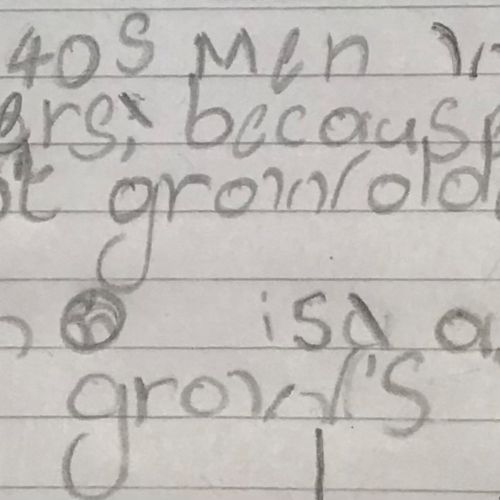 40s Men
ers, because
grow old
isa a
grow's